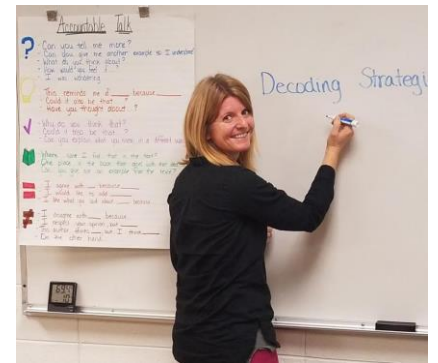 Accountable Talk
? - Can you tell me more?
- Can you give me another example so I understand?
- What do you think about
- How would you feel if
- I was wondering
- This reminds me of ____ because ____
- Could it also be that
- Have you thought about ?
- Why do you think that?
- Could it also be that ?
- Can you explain what you mean in a different way
- Where can I find that in the text?
- I agree with ____ because
- I would like to add
- I like what you said about ____ because
- I disagree with ____ because
- I respect your opinion, but
- The author states ____, but I think ____
- On the other hand
Decoding Strategi